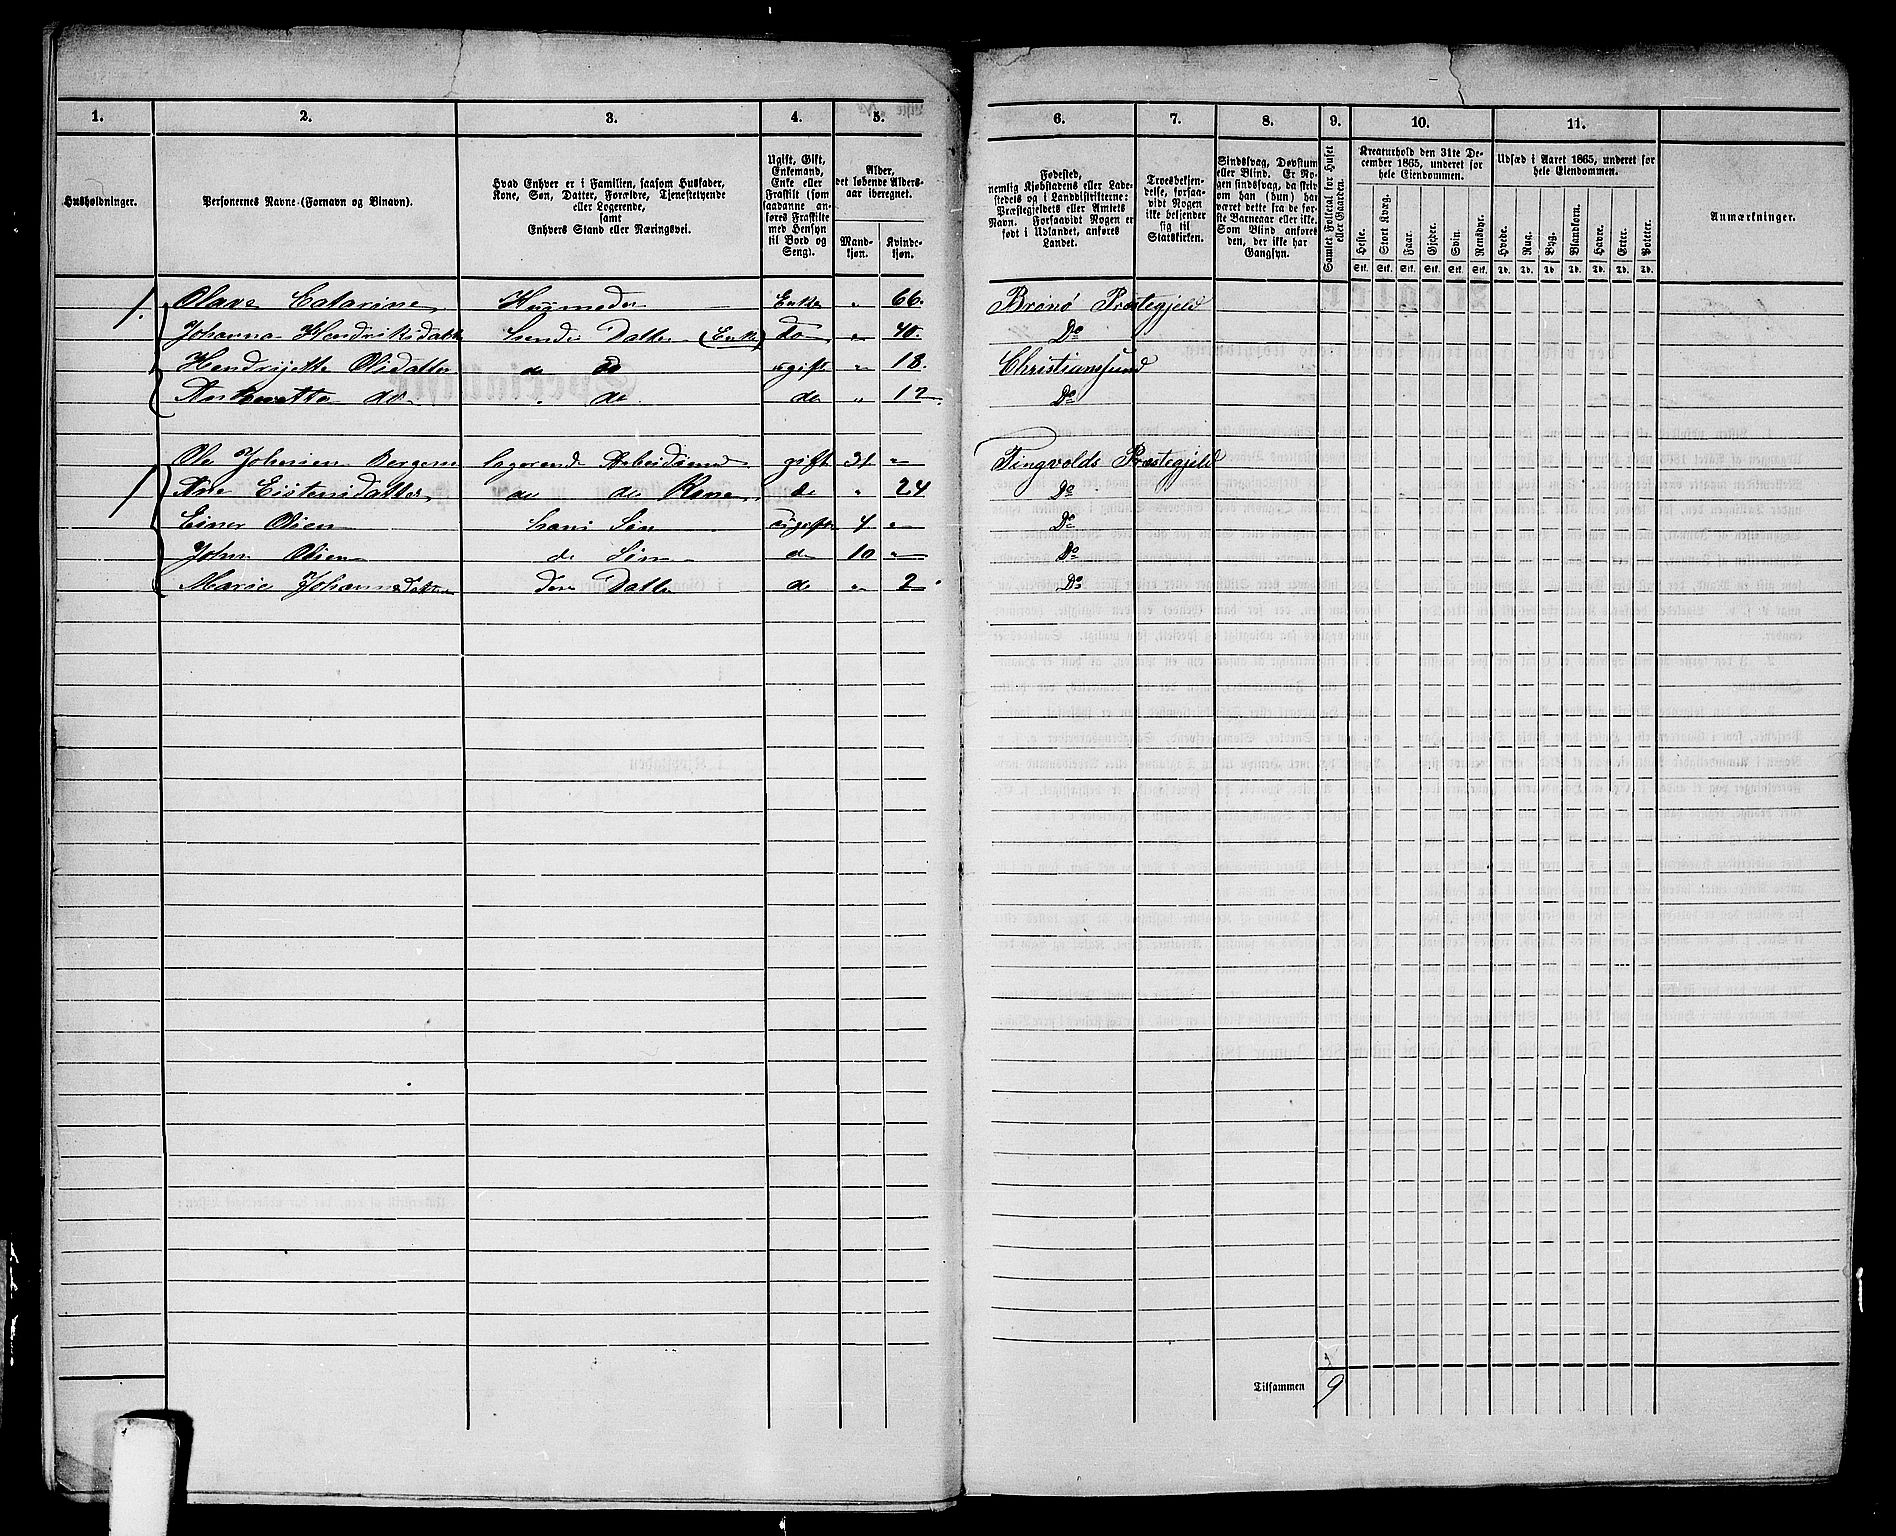 1. 2. 3. 4. 5. 6. 7. 8. 9. 10. 11.
Husholdninger.
Personernes Navne (Fornavn og Binavn).
Hvad Enhver er i Familien, saasom Husfader,
Kone, Søn, Datter, Forældre, Tjenestetyende
eller Logerende,
samt
Enhvers Stand eller Næringsvei.
Ugift, Gift,
Enkemand,
Enke eller
Fraskilt (som
saadanne an-
føres Fraskilte
med Hensyn
til Bord og
Seng).
Alder,
det løbende Alders-
aar iberegnet.
Mand-
kjøn.
Kvinde-
kjøn.
Fødested,
nemlig Kjøbstadens eller Lade-
stedets og i Landdistrikterne:
Præstegjeldets eller Amtets
Navn. Forsaavidt Nogen er
født i Udlandet, anføres
Landet.
Troesbekjen-
delse, forsaa-
vidt Nogen
ikke bekjender
sig til
Statskirken.
Sindssvag, Døvstum
eller Blind. Er No-
gen sindssvag, da skriv
om han (hun) har
været dette fra de før-
ste Barneaar eller ikke.
Som Blind anføres
den, der ikke har
Gangsyn.
Samlet Folketal for Huset
eller Gaarden.
Kreaturhold den 31te De-
cember 1865, underet for
hele Eiendommen.
Heste. Stort Kvæg. Faar. Gjeder. Svin. Rensdyr.
Stk. Stk. Stk. Stk. Stk. Stk.
Udsæd i Aaret 1865, underet for
hele Eiendommen.
Hvede. Rug. Byg. Blandkorn. Havre. Erter. Poteter.
Td. Td. Td. Td. Td. Td. Td.
Anmærkninger.
1. Olave Catarine Huusmoder Enke " 66. Brønø Præstegjeld
Johanna Hendriksdatter hendes Datter (Enke) do " 40. Do
Hendrijette Olsdatter do do ugift " 18. Christianssund
Antonette do " do do " 12. Do
1 Ole Johnsen Bergem logerende Arbeidsmd gift 31 " Tingvolds Præstegjeld
Ane Eistensdatter do do Kone do " 24 Do
Einer Olsen hans Søn ugift 4 " Do
John Olsen do Søn do 10 " Do
Marie Johannsdatter deres Datter do " 2 Do
Tilsammen 9